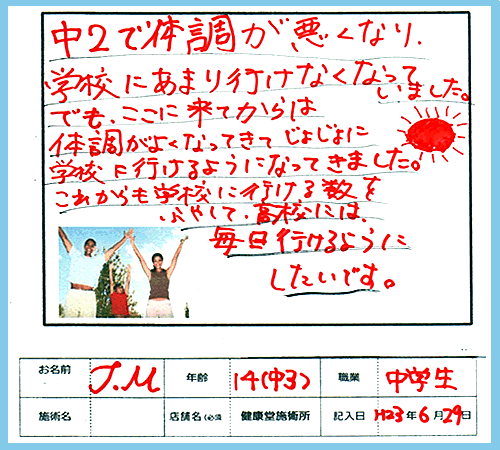 中2で体調が悪くなり、
学校にあまり行けなくなって
いました。
でも、ここに来てからは
体調がよくなってきてじょじょに
学校に行けるようになってきました。
これからも学校に行ける数を
ふやして、高校には、
毎日行けるように
したいです。
お名前 J.M 年齢 14(中3) 職業 中学生
施術名 店舗名(必須 健康堂施術所 記入日 H23年6月29日